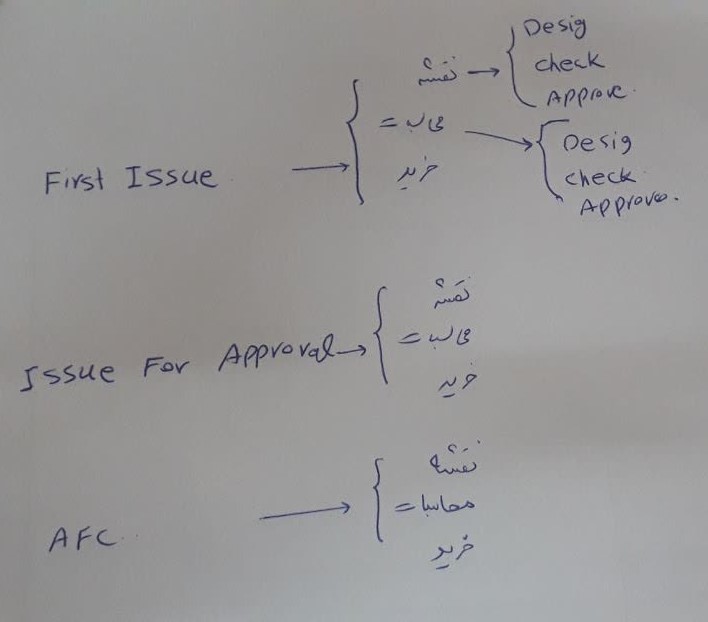 First Issue → نقشه → Desig
check
Approve.
محاسبات → Desig
check
Approve.
خرید
Issue For Approval → نقشه
محاسبات
خرید
AFC. → نقشه
محاسبات
خرید